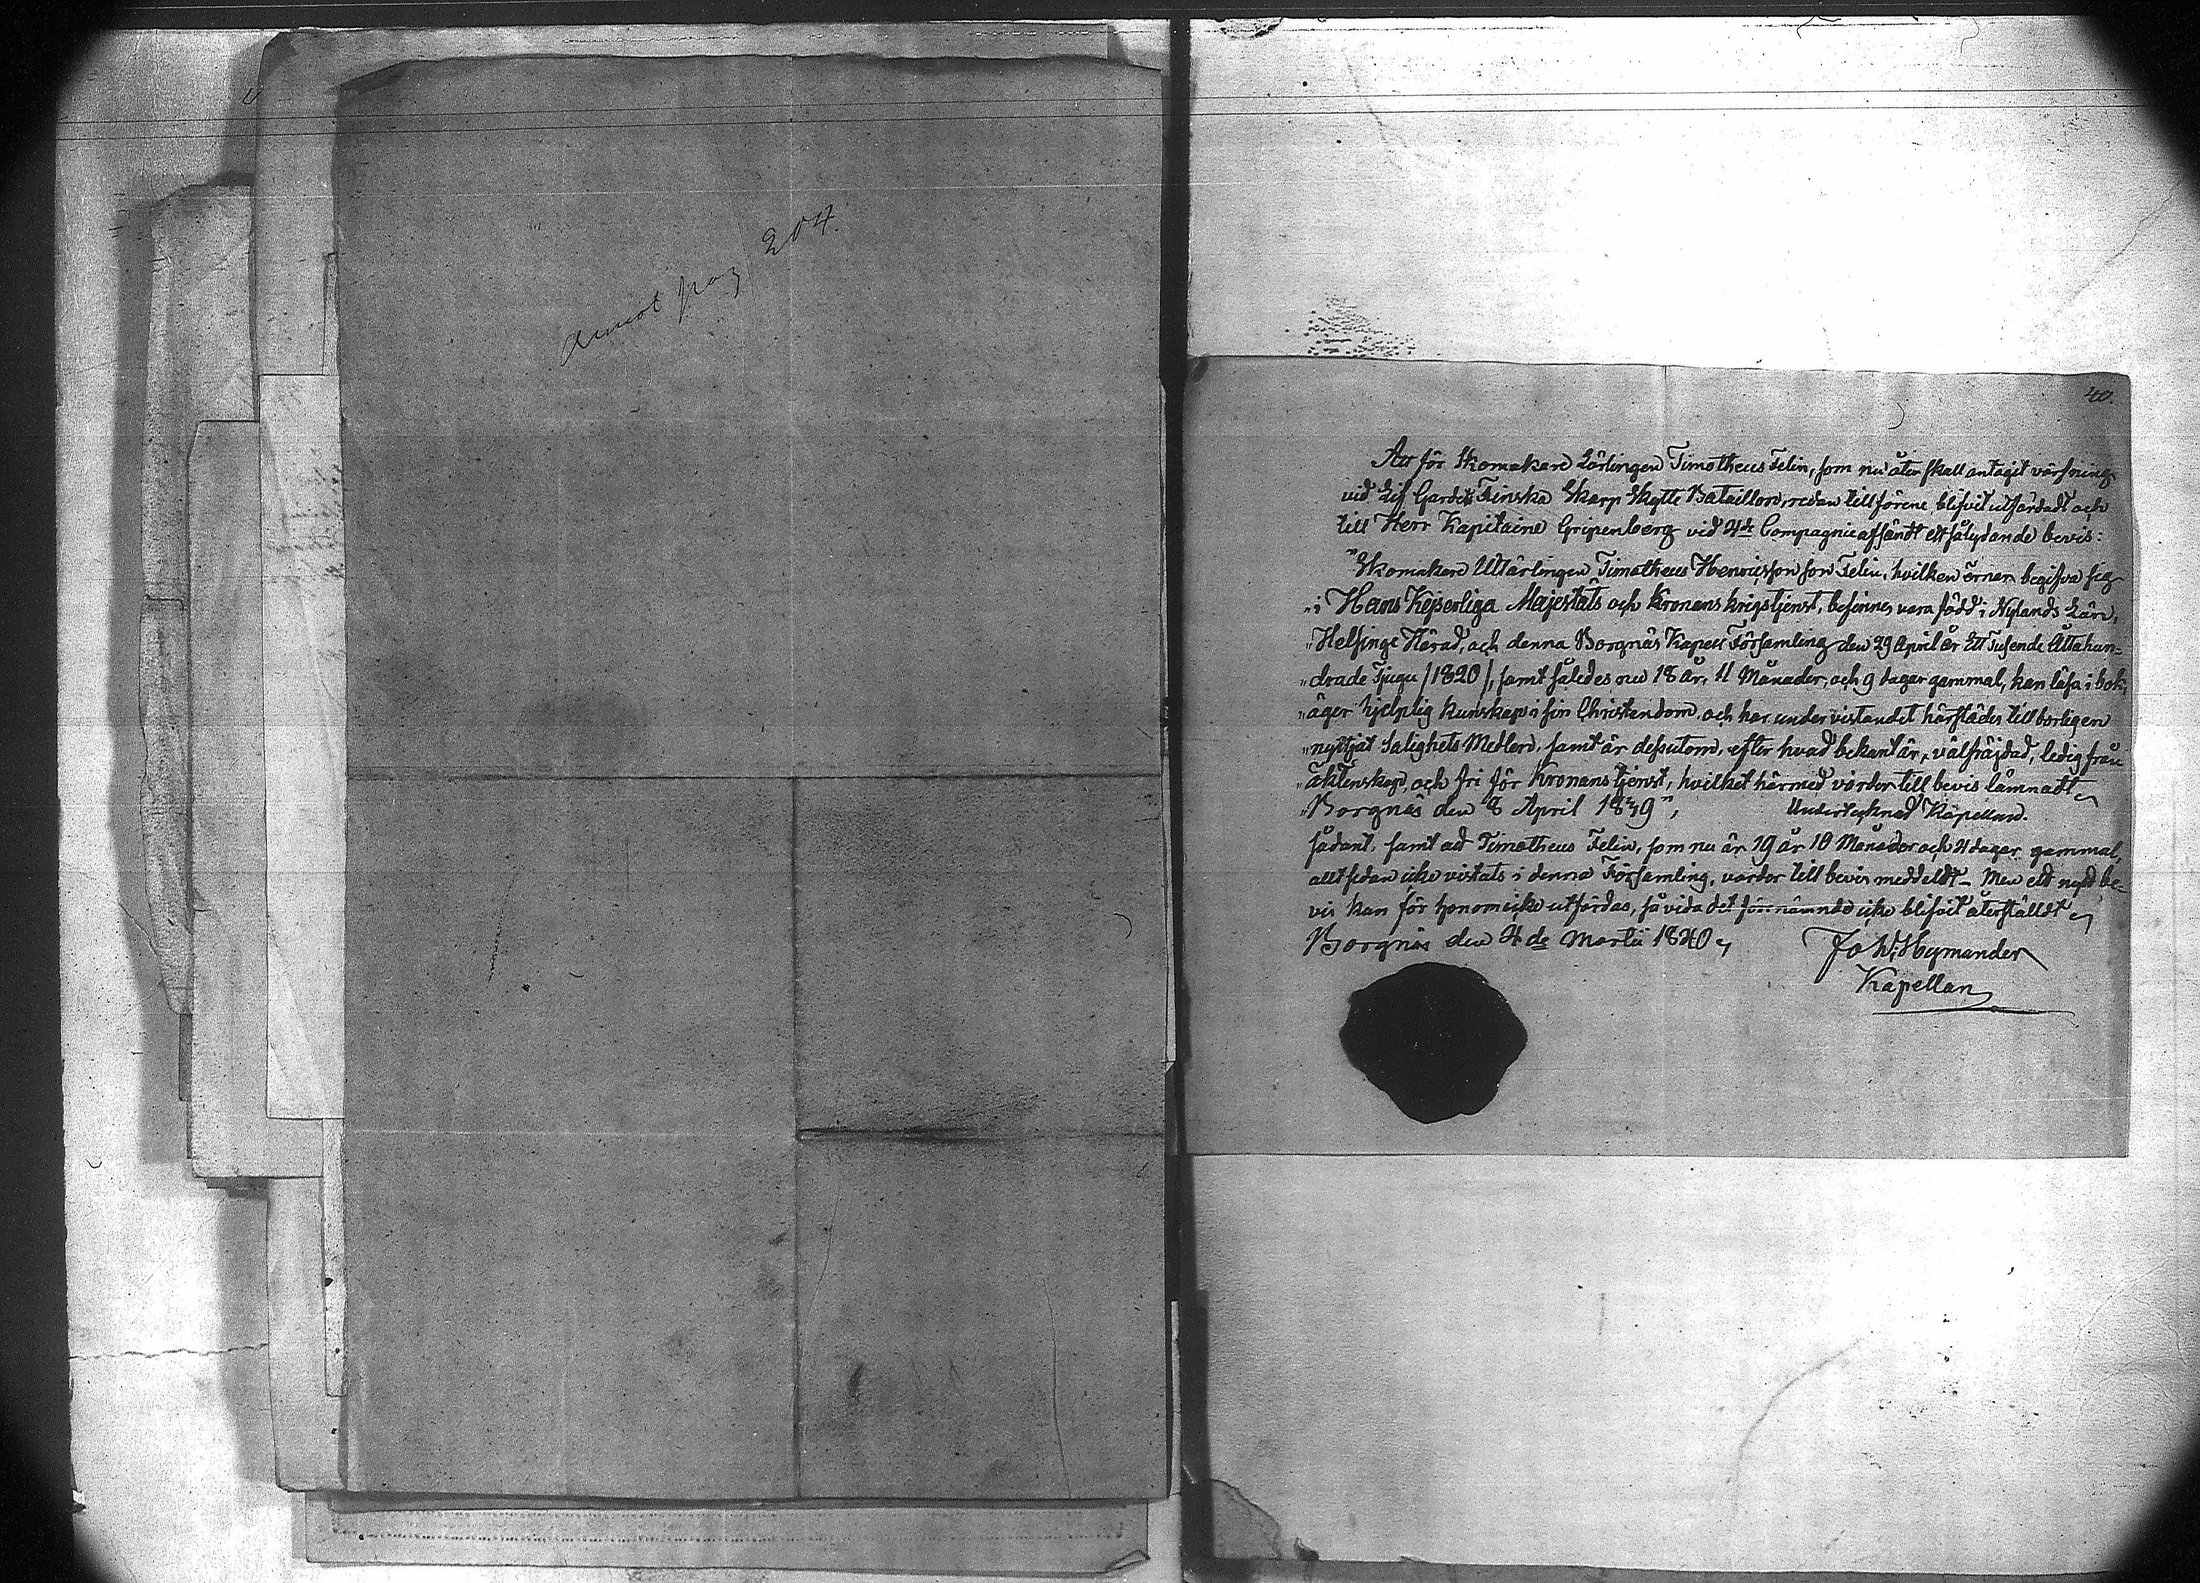 annot pag 204.
40.
Att för Skomakare Lärlingen Timotheus Felin, som nu åter skall antagit värfning
vid Lif Gardets Finska Skarp Skytte Bataillon, redan tillförene blifvit utfärdadt och
till Herr Kapitaine Gripenberg vid 4de Compagnie afsändt ett sålydande bevis:
"Skomakare Utlärlingen Timotheus Henricsson Felin, hvilken ernar begifva sig
"i Hans Kejserliga Majestäts och Kronans krigstjenst, befinnes vara född i Nylands Län,
"Helsinge Härad, och denna Borgnäs Kapell Församling den 29 April år Ett Tusende Åttahun=
"drade Tjugu /1820/, samt således nu 18 år, 11 Månader, och 9 dagar gammal, kan läsa i bok,
"äger hjelplig kunskap i sin Christendom, och har under vistandet härstädes tillbörligen
"nyttjat Salighets Medlen, samt är dessutom, efter hvad bekant är, välfräjdad, ledig från
"äktenskap, och fri för Kronans tjenst, hvilket härmed varder till bevis lämnadt
"Borgnäs den 8 April 1839", Undertecknad Kapellan.
sådant, samt att Timotheus Felin, som nu är 19 år 10 Månader och 4 dagar gammal,
allt sedan icke vistats i denna Församling, varder till bevis meddeldt - Men ett nytt be=
vis kan för honom icke utfärdas, så vida det förrnämnde icke blifvit återstäldt
Borgnäs den 4 de Martii 1840
Jo W: Hymander
Kapellan